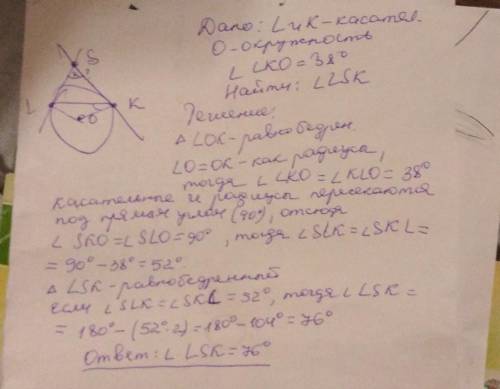 Дано: L и K - касател.
O - окружность
∠ LKO = 38°
Найти: ∠LSK
Решение:
△ LOK - равнобедрен.
LO = OK - как радиусы,
тогда ∠ LKO = ∠ KLO = 38°
касательные и радиусы пересекаются
под прямым углом (90°), отсюда
∠ SKO = ∠ SLO = 90°, тогда ∠SLK = ∠SKL =
= 90° - 38° = 52°
△ LSK - равнобедренный
если ∠SLK = ∠SKL = 52°, тогда ∠ LSK =
= 180° - (52°·2) = 180° - 104° = 76°
Ответ: ∠ LSK = 76°
S
?
L
K
O